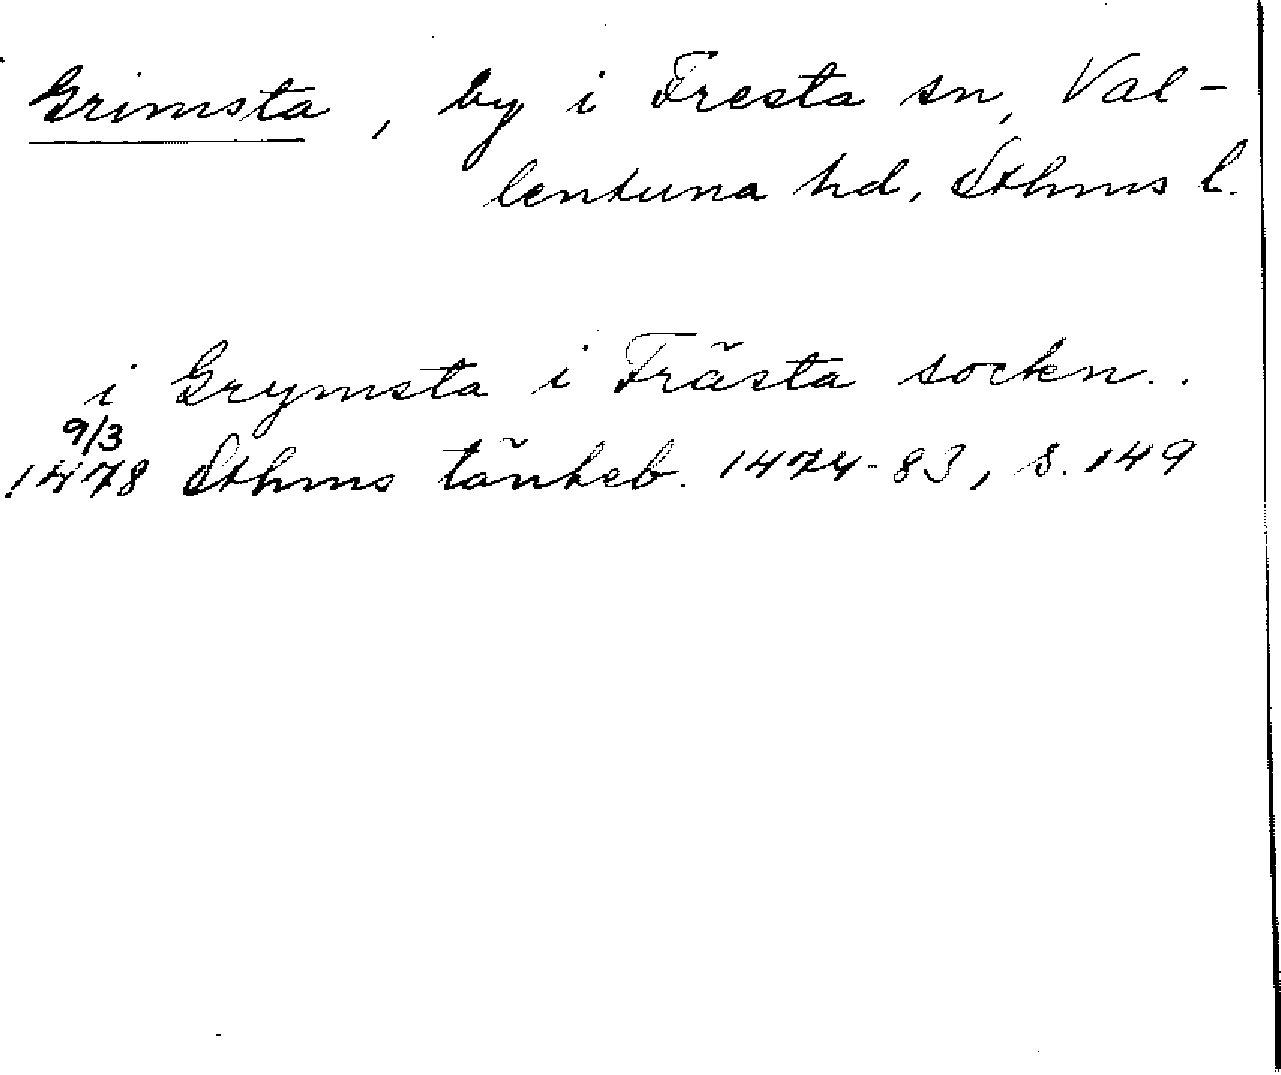 Grimsta, by i Fresta sn, Val-
lentuna hd, Sthms l.
i Grymsta i Frästa sockn..
9/3
1478 Sthms tänkeb. 1474-83, s. 149